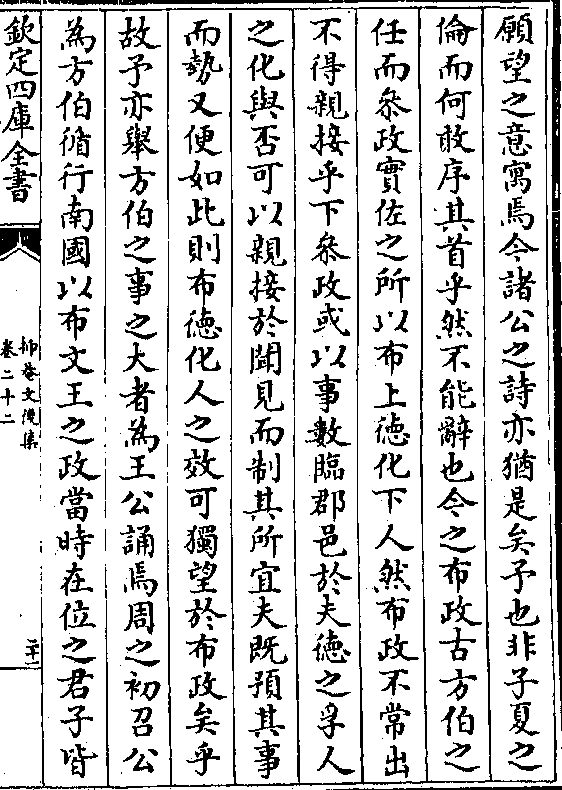 願望之意寓焉今諸公之詩亦猶是矣予也非子夏之
倫而何敢序其首乎然不能辭也今之布政古方伯之
任而叅政實佐之所以布上徳化下人然布政不常出
不得親接乎下叅政或以事數臨郡邑於夫徳之孚人
之化與否可以親接於聞見而制其所宜夫既預其事
而勢又便如此則布徳化人之效可獨望於布政矣乎
故予亦舉方伯之事之大者為王公誦焉周之初召公
為方伯循行南國以布文王之政當時在位之君子皆
欽定四庫全書
抑菴文後集
卷二十二
二十一